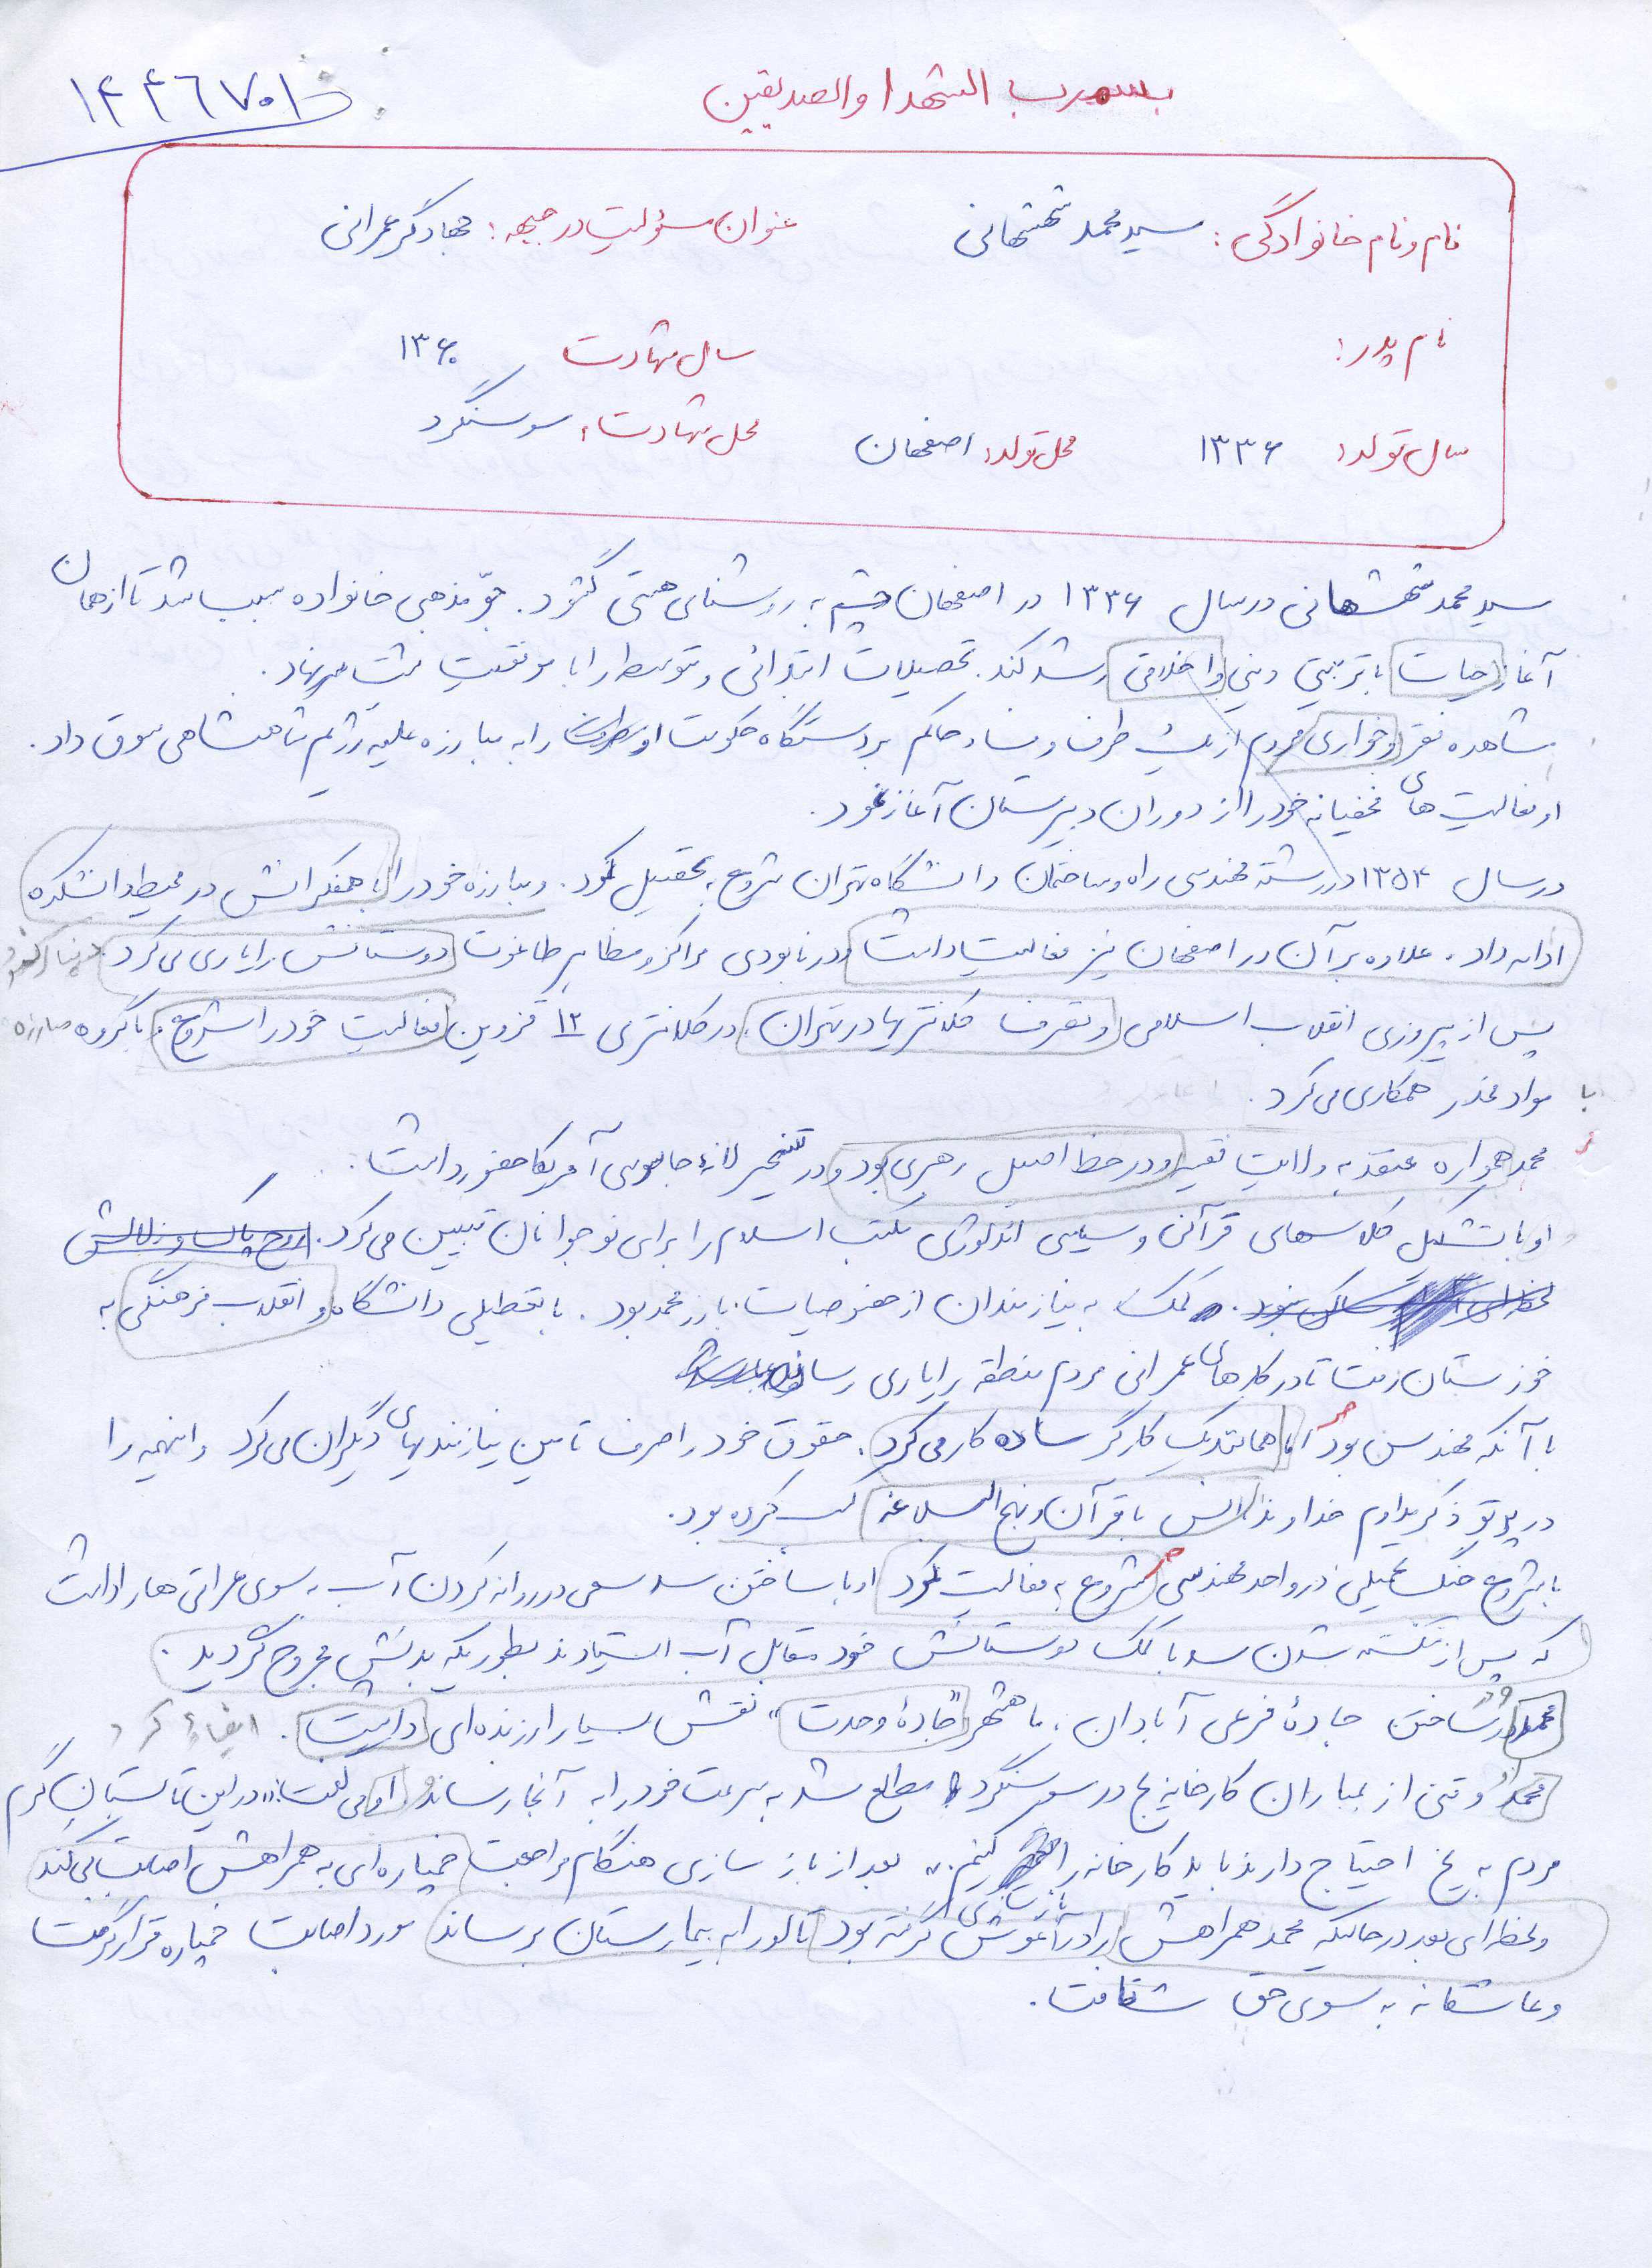 بسم رب الشهدا والصدیقین
۱۴۴۶۷۰۱
نام و نام خانوادگی: سید محمد شهشهانی عنوان مسؤلیت در جبهه: جهادگر عمرانی
نام پدر: سال شهادت ۱۳۶۰
سال تولد: ۱۳۳۶ محل تولد: اصفهان محل شهادت: سوسنگرد
سید محمد شهشهانی در سال ۱۳۳۶ در اصفهان چشم به روشنای هستی گشود. جوّ مذهبی خانواده سبب شد تا از همان
آغاز حیات با تربیتی دینی و اخلاقی رشد کند. تحصیلات ابتدائی و متوسط را با موفقیت پشت سر نهاد.
مشاهده فقر و خواری مردم از یک طرف و فساد حاکم بر دستگاه حکومت او را به مبارزه علیه رژیم شاهنشاهی سوق داد.
او فعالیت های مخفیانه خود را از دوران دبیرستان آغاز نمود.
در سال ۱۳۵۴ در رشته مهندسی راه و ساختمان دانشگاه تهران شروع به تحصیل کرد. و مبارزه خود را با همفکرانش در محیط دانشکده
ادامه داد. علاوه بر آن در اصفهان نیز فعالیت داشت و در نابودی مراکز و مظاهر طاغوت دوستانش را یاری می کرد.
پس از پیروزی انقلاب اسلامی و تصرف کلانتریها در تهران، در کلانتری ۱۲ قزوین فعالیت خود را شروع و با گروه مبارزه
با مواد مخدر همکاری می کرد.
محمد همواره معتقد به ولایت فقیه و در خط اصیل رهبری بود و در تسخیر لانهٔ جاسوسی آمریکا حضور داشت.
او با تشکیل کلاسهای قرآنی و سیاسی ائدلوژی مکتب اسلام را برای نوجوانان تبیین می کرد. روح پاک و زلالش
کمک به نیازمندان از خصوصیات بارز محمد بود. با تعطیلی دانشگاه و انقلاب فرهنگی به
خوزستان رفت تا در کارهای عمرانی مردم منطقه را یاری رساند
با آنکه مهندس بود اما همانند یک کارگر ساده کار می کرد. حقوق خود را صرف تامین نیازمندیهای دیگران می کرد و اینهمه را
در پرتو ذکر مداوم خداوند انس با قرآن و نهج البلاغه کسب کرده بود.
با شروع جنگ تحمیلی در واحد مهندسی شروع به فعالیت کرد او با ساختن سد سعی در روانه کردن آب به سوی عراقی ها را داشت
که پس از شکسته شدن سد با کمک دوستانش خود مقابل آب ایستادند بطوریکه بدنش مجروح گردید.
محمد در ساختن جادهٔ فرعی آبادان، ماهشهر "جادهٔ وحدت" نقش بسیار ارزنده ای داشت. ایفاء کرد
محمد وقتی از بمباران کارخانه یخ در سوسنگرد مطلع شد به سرعت خود را به آنجا رساند او می گفت: "در این تابستان گرم
مردم به یخ احتیاج دارند باید کارخانه را بازسازی کنیم." بعد از باز سازی هنگام مراجعت خمپاره ای به همراهش اصابت می کند
و لحظه ای بعد در حالیکه محمد همراهش را در آغوش گرفته بود تا او را به بیمارستان برساند مورد اصابت خمپاره قرار گرفت
و عاشقانه به سوی حق شتافت.